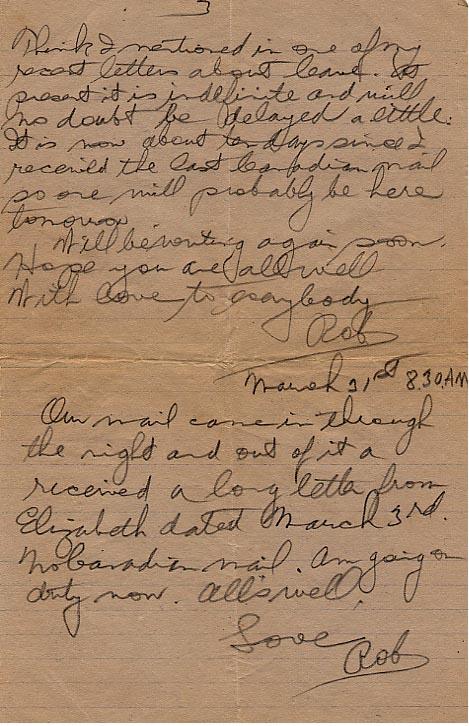 3
Think I mentioned in one of my
recent letters about leave. At
present it is indefinite and will
no doubt be delayed a little.
It is now about ten days since I
received the last Canadian mail
so one will probably be here
tomorrow
Will be writing again soon.
Hope you are all well
With love to everybody
Rob
March 31st 8.30 AM
Our mail came in through
the night and out of it a
received a long letter from
Elizabeth dated March 3rd.
No Canadian mail. Am going on
duty now. All's well.
Love
Rob